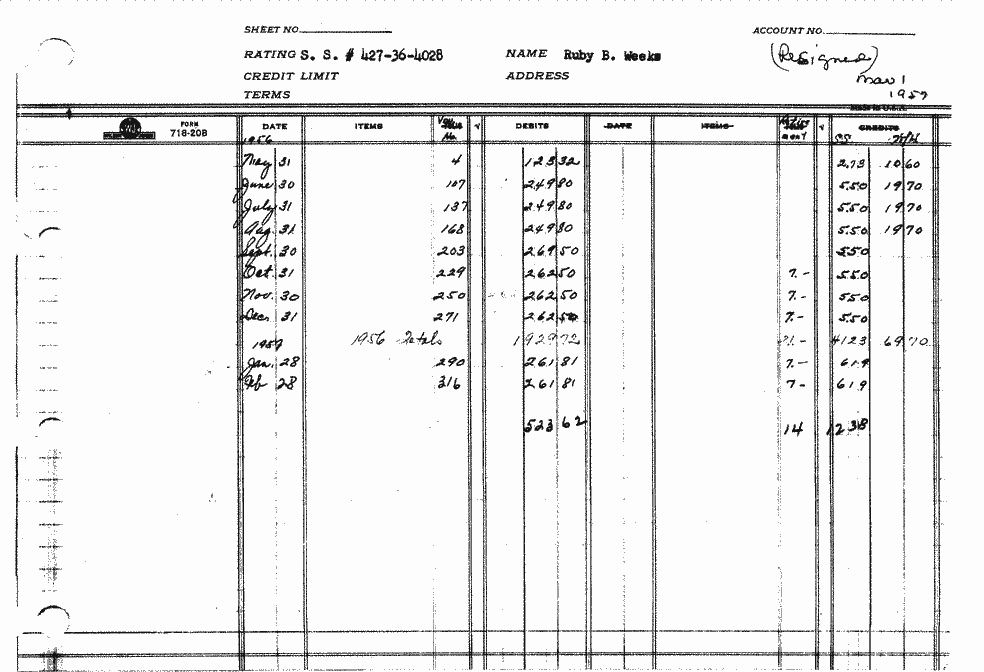 SHEET NO.
ACCOUNT NO.
RATING S. S. # 427-36-4028 NAME Ruby B. Weeks (Resigned)
CREDIT LIMIT ADDRESS Mar 1
TERMS 1957
MADE IN U.S.A.
FORM 718-20B DATE ITEMS Vou No. √ DEBITS DATE ITEMS √ CREDITS
1956 ment SS
May 31 4 123 32 2.73 10 60
June 30 107 249 80 5.50 19 70
July 31 137 249 80 5.50 19 70
Aug. 31 168 249 80 5.50 19 70
Sept. 30 203 269 50 5 50
Oct. 31 229 262 50 7.- 5 50
Nov. 30 250 262 50 7.- 5 50
Dec. 31 271 262 50 7.- 5.50
1956 Totals 1929 72 21.- 41 23 69 70
1957
Jan. 28 290 261 81 7.- 6 19
Feb 28 316 261 81 7- 6 19
523 62 14 12 38